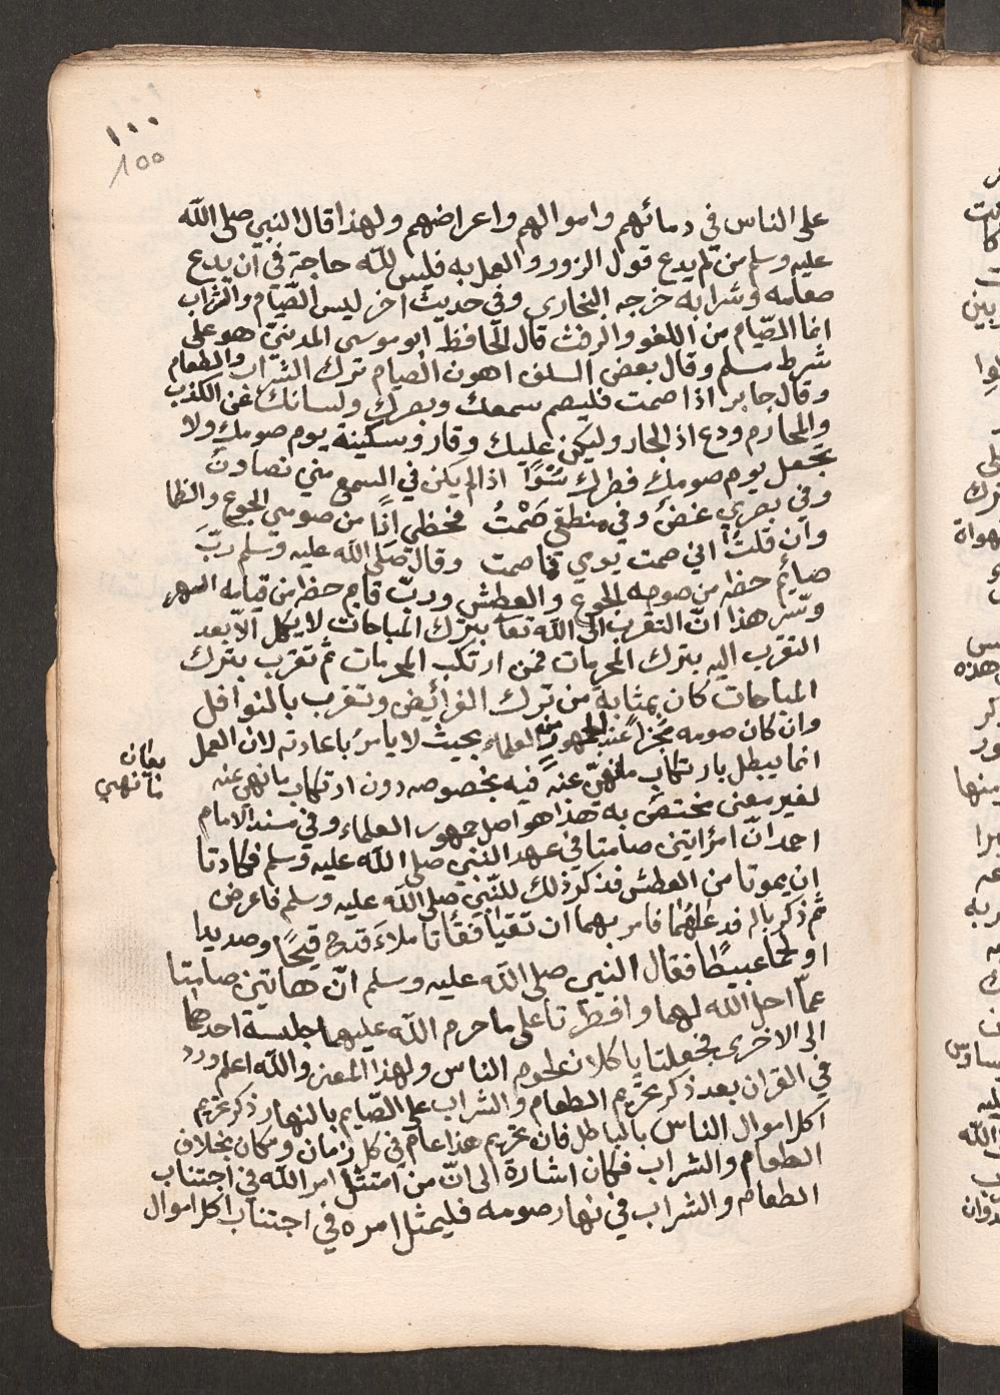 ١٠٠
100
على الناس في دمائهم واموالهم واعراضهم ولهذا قال النبي صلى الله
عليه وسلم من لم يدع قول الزور والعمل به فليس لله حاجة في ان يدع
طعامه وشرابه خرجه البخاري وفي حديث اخر ليس الصّيام والشراب
انما الصّيام من اللغو والرفث قال الحافظ ابو موسى المدنيّ هو على
شرط مسلم وقال بعض السلف اهون الصيام ترك الشراب والطعام
وقال جابر اذا صمت فليصم سمعك وبصرك ولسانك عن الكذب
والمحارم ودع اذ الجار وليكن عليك وقار وسكينة يوم صومك ولا
تجعل يوم صومك فطرك سَوًا اذا لم يكن في السمع مني تصاون
وفي بصري غضٌ وفي منطقي صَمْتُ فحظي اذًا من صومي الجوع والظا
وان قلتُ اني صمت يومي فما صمت وقال صلى الله عليه وسلم ربّ
صائم حظه من صومه الجوع والعطش وربّ قائم حظه من قيامه السهر
وسّر هذا انّ التقرب الى الله تعا بترك المباحات لا يكمل الّا بعد
التقرب اليه بترك المحرمات فمن ارتكب المحرمات ثم تقرب بترك
المباحات كان بمثابة من ترك الفرائض وتقرب بالنوافل
وان كان صومه مُجزاً عند الجمهور من العلماء بحيث لا يامرُ باعادته لان العمل
انما يبطل بارتكاب ما نهيّ عنه فيه بخصوصه دون ارتكاب ما نهي عنه
ما نهي
لغير معنى يختصّ به هذا هو اصل جمهور العلماء وفي مسند الامام
احمد انّ امرايتين صامتا في عهد النبي صلى الله عليه وسلم فكادتا
ان يموتا من العطش فذكر ذلك للنّبي صلى الله عليه وسلم فاعرض
ثم ذكر باله فدعاهما فامر بهما ان تقيا فقأتا ملاءَ قدح قيحًا وصديدا
او لحما عبيطًا فقال النبي صلى الله عليه وسلم انّ هاتين صامتا
عمّا احل الله لهما وافطرتا على ما حرم الله عليهما جلسة احدهما
الى الاخرى فجعلتا ياكلان لحوم الناس ولهذا المعنى والله اعلم ورد
في القران بعد ذكر تحريم الطعام والشراب على الصّايم بالنهار ذكر تحريم
اكل اموال الناس بالباطل فان تحريم هذا عام في كل زمان ومكان بخلاف
الطعام والشراب فكان اشارة الى انّ من امتثل امر الله في اجتناب
الطعام والشراب في نهار صومه فليمثل امره في اجتناب اكل اموال